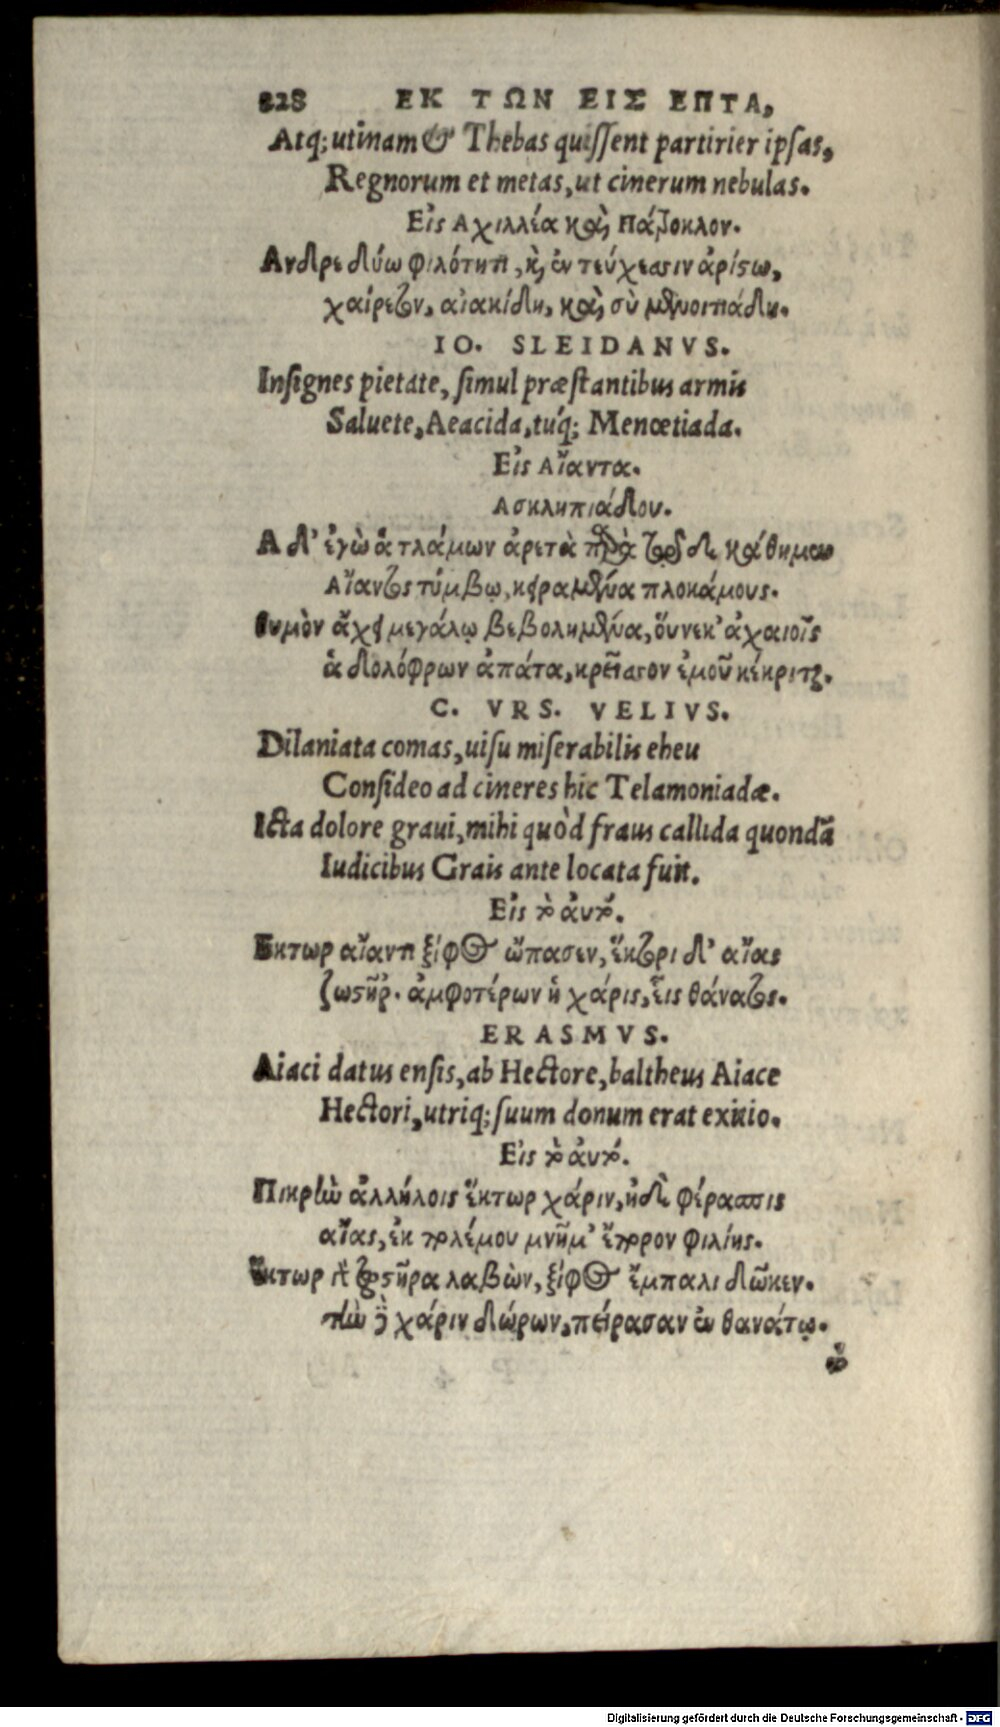 228 ΕΚ ΤΩΝ ΕΙΣ ΕΠΤΑ,
Atq; utinam & Thebas quiſſent partirier ipſas,
Regnorum et metas, ut cinerum nebulas.
Εἰς Αχιλλέα καὶ Πάτροκλον.
Ανδρε δύω φιλότητι, κὶ ἐν τεύχεσιν ἀρίστω,
χαίρετον, αἰακίδη, καὶ σὺ μενοιτιάδη.
IO. SLEIDANVS.
Inſignes pietate, ſimul præſtantibus armis
Saluete, Aeacida, tuq́; Menœtiada.
Εἰς Αἴαντα.
Ασκληπιάδου.
Α δ' ἐγὼ ἁ τλάμων ἀρετὰ παρὰ τῷδε κάθημαι
Αἴαντος τύμβῳ, κειραμένα πλοκάμους.
θυμὸν ἄχει μεγάλῳ βεβολημένα, ὅυνεκ' ἀχαιοῖς
ἁ δολόφρων ἀπάτα, κρεῖσσον ἐμοῦ κέκριται.
C. VRS. VELIVS.
Dilaniata comas, uiſu miſerabilis eheu
Conſideo ad cineres hic Telamoniadæ.
Icta dolore graui, mihi quòd fraus callida quondã
Iudicibus Grais ante locata fuit.
Εἰς τὸ ἀυτό.
Εκτωρ αἴαντι ξίφος ὤπασεν, ἕκτορι δ' αἴας
ζωστῆρ. ἀμφοτέρων ἡ χάρις, εἷς θάνατος.
ERASMVS.
Aiaci datus enſis, ab Hectore, baltheus Aiace
Hectori, utriq; ſuum donum erat exitio.
Εἰς τὸ ἀυτό.
Πικρὴν ἀλλήλοις ἕκτωρ χάριν, ἠδὲ φέρασπις
αἴας, ἐκ πολέμου μνῆμ' ἔπορον φιλίης.
Ἕκτωρ γὰρ ζωστῆρα λαβὼν, ξίφος ἔμπαλι δῶκεν.
τὴν δὲ χάριν δώρων, πείρασαν ἐν θανάτῳ.
Digitalisierung gefördert durch die Deutsche Forschungsgemeinschaft - DFG